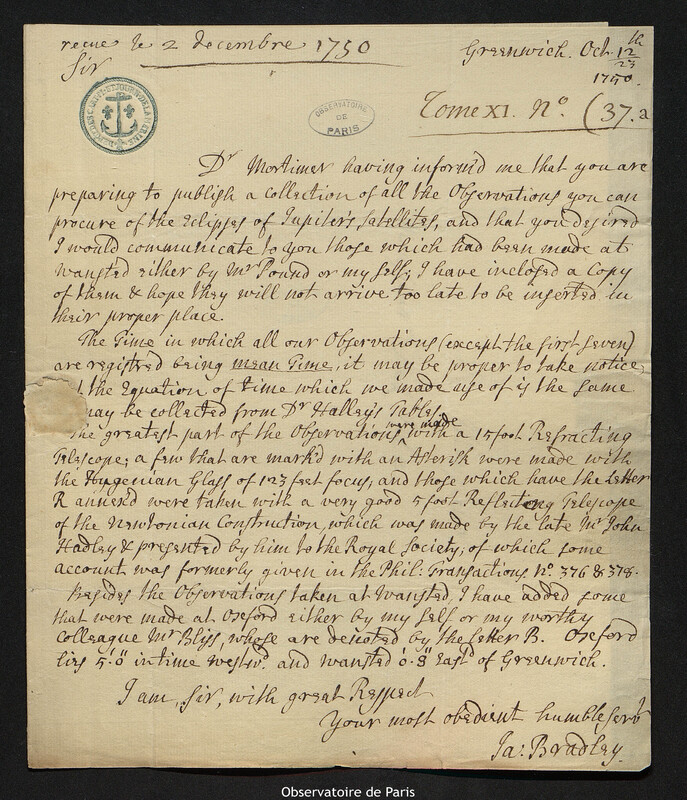 recue le 2 decembre 1750
Greenwich. Oct. 12th/23
Sir
1750.
OBSERVATOIRE
DE
PARIS
Tome XI. No. (37.a
Dr Mortimer having inform'd me that you are
preparing to publish a Collection of all the Observations you can
procure of the Eclipses of Jupiter's Satellites, and that you desired
I would communicate to you those which had been made at
Wansted either by Mr Pound or my self; I have inclosed a Copy
of them & hope they will not arrive too late to be inserted in
their proper place.
The Time in which all our Observations (except the first seven)
are registred being mean Time, it may be proper to take notice,
the Equation of time which we made use of is the same
may be collected from Dr Halley's Tables.
The greatest part of the Observations were made with a 15 foot Refracting
Telescope; a few that are mark'd with an Asterisk were made with
the Hugenian Glass of 123 feet focus; and those which have the Letter
R annex'd were taken with a very good 5 foot Reflecting Telescope
of the Newtonian Construction, which was made by the late Mr John
Hadley & presented by him to the Royal Society; of which some
account was formerly given in the Phil: Transactions No. 376 & 378.
Besides the Observations taken at Wansted, I have added some
that were made at Oxford either by my self or my worthy
Colleague Mr Bliss, whose are denoted by the Letter B. Oxford
lies 5'.0" in time westwd. and Wansted 0'.8" Eastd. of Greenwich.
I am, Sir, with great Respect
Your most obedient humble Servt
Ja: Bradley.
Observatoire de Paris